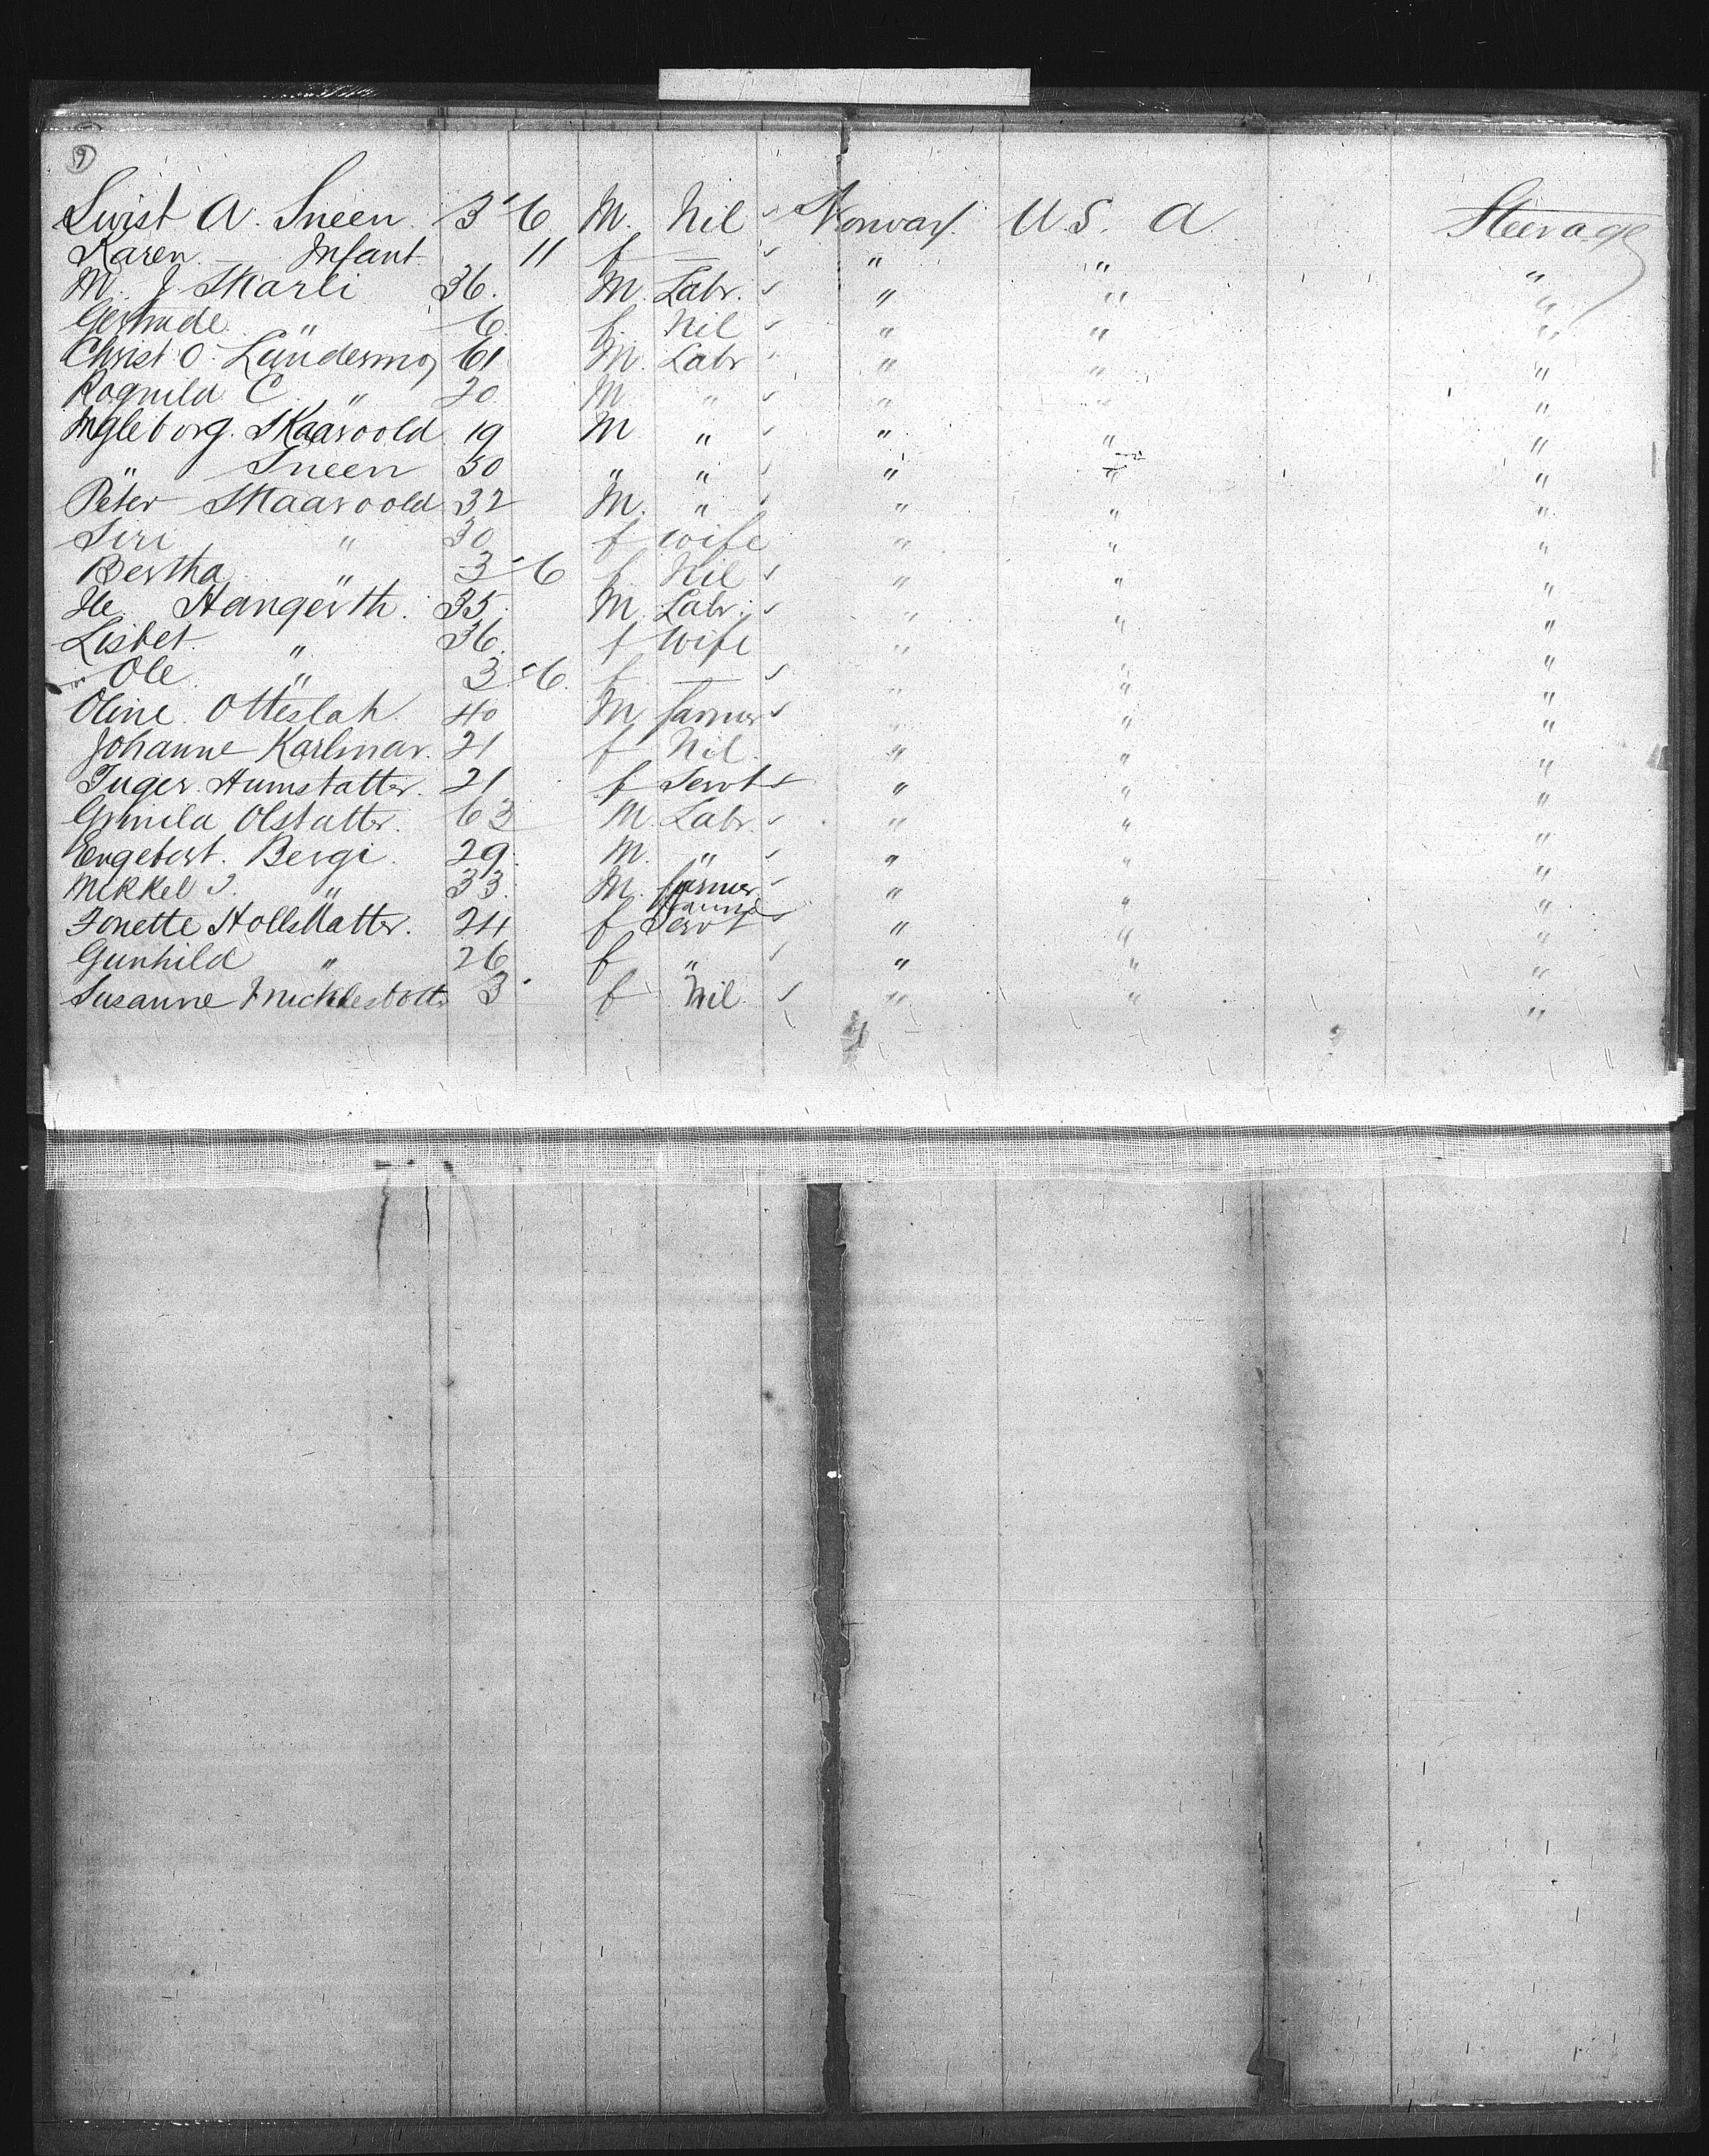 9
Swist A. Sneen. 3 6 M. Nil Norway. U.S. A Steerage
Karen — Infant 11 f — " " "
M. J. Skarli 36. M. Labr. " " "
Gertrude " 6. f. Nil " " "
Christ O. Landesmo, 61 M. Labr " " "
Rognild C. " 20 M. " " " "
Ingleborg. Skaarvold 19 M " " " "
" Sneen 30 " " " " "
Peter Skaarvold 32 M. " " " "
Siri " 30 f wife " " "
Bertha " 3 6 f. Nil " " "
Ole Hangerth. 35. M. Labr. " " "
Lisbet. " 36. f Wife " " "
Ole. " 3 6. f. — " " "
Oline. Otteslah. 40 M farmer " " "
Johanne Karlmar. 21 f Nil. " " "
Inger. Humstatter. 21 f Servt " " "
Gunila Olstatter. 63 M. Labr. " " "
Engebert. Bergi. 29. M. " " " "
Mikkel J. " 33. M. farmer " " "
Jonette Hollslatter. 24 f Servt " " "
Gunhild " 26 f " " " "
Susanne 3 f Nil. " " "